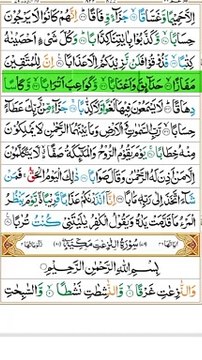 اِلَّا حَمِيْمًا وَّغَسَّاقًا جَزَآءً وِّفَاقًا اِنَّهُمْ كَانُوْا لَا يَرْجُوْنَ
حِسَابًا وَّكَذَّبُوْا بِاٰيٰتِنَا كِذَّابًا وَكُلَّ شَيْءٍ اَحْصَيْنٰهُ
كِتٰبًا فَذُوْقُوْا فَلَنْ نَّزِيْدَكُمْ اِلَّا عَذَابًا اِنَّ لِلْمُتَّقِيْنَ
مَفَازًا حَدَآئِقَ وَاَعْنَابًا وَّكَوَاعِبَ اَتْرَابًا وَّكَاْسًا
دِهَاقًا لَا يَسْمَعُوْنَ فِيْهَا لَغْوًا وَّلَا كِذّٰبًا جَزَآءً مِّنْ رَّبِّكَ عَطَآءً
حِسَابًا رَّبِّ السَّمٰوٰتِ وَالْاَرْضِ وَمَا بَيْنَهُمَا الرَّحْمٰنِ لَا يَمْلِكُوْنَ
مِنْهُ خِطَابًا يَوْمَ يَقُوْمُ الرُّوْحُ وَالْمَلٰٓئِكَةُ صَفًّا لَّا يَتَكَلَّمُوْنَ
اِلَّا مَنْ اَذِنَ لَهُ الرَّحْمٰنُ وَقَالَ صَوَابًا ذٰلِكَ الْيَوْمُ الْحَقُّ فَمَنْ
شَآءَ اتَّخَذَ اِلٰى رَبِّهٖ مَاٰبًا اِنَّآ اَنْذَرْنٰكُمْ عَذَابًا قَرِيْبًا يَّوْمَ يَنْظُرُ
الْمَرْءُ مَا قَدَّمَتْ يَدٰهُ وَيَقُوْلُ الْكٰفِرُ يٰلَيْتَنِيْ كُنْتُ تُرٰبًا
سُوْرَةُ النّٰزِعٰتِ مَكِّيَّةٌ
بِسْمِ اللّٰهِ الرَّحْمٰنِ الرَّحِيْمِ
وَالنّٰزِعٰتِ غَرْقًا وَّالنّٰشِطٰتِ نَشْطًا وَّالسّٰبِحٰتِ